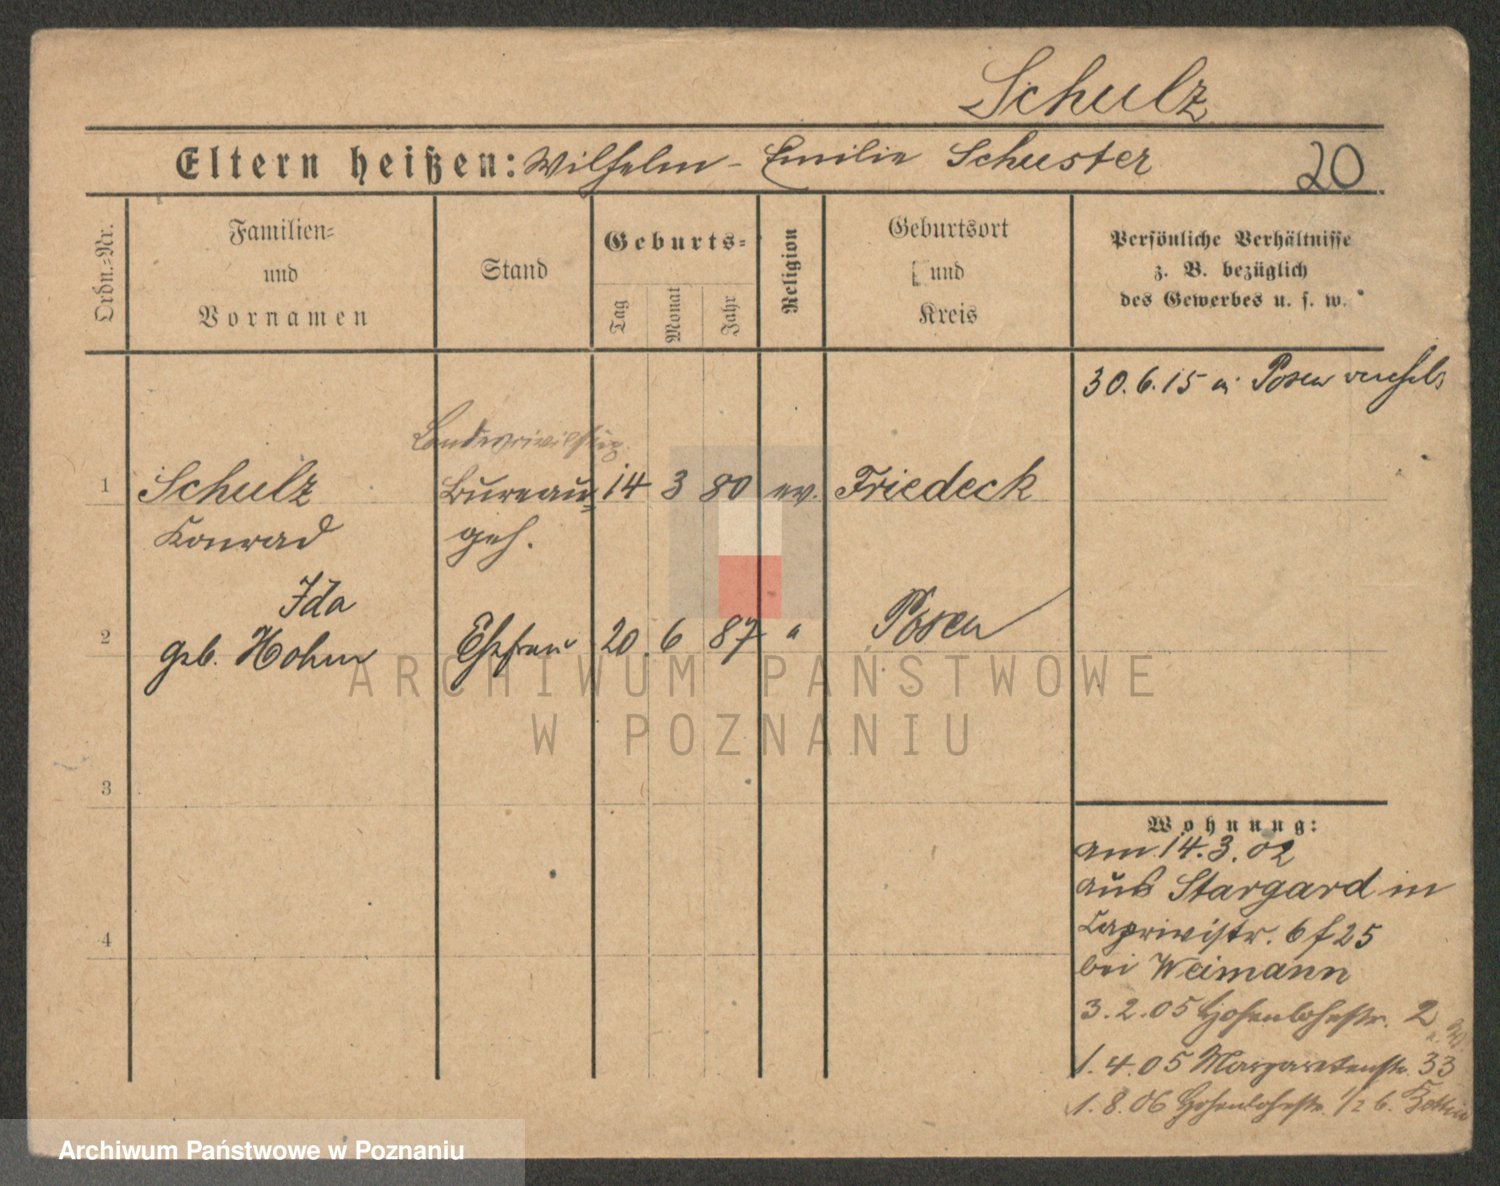 Schulz
Eltern heißen: Wilhelm - Emilie Schuster 20
Ordn.-Nr.
Familien-
und
Vornamen
Stand
Geburts-
Tag
Monat
Jahr
Religion
Geburtsort
und
Kreis
Persönliche Verhältnisse
z. B. bezüglich
des Gewerbes u. s. w.
30.6.15 Posen
1 Schulz Bureau= 14 3 80 ev. Friedeck
Konrad geh.
Ida
2 geb. Hohm Ehefrau 20. 6 87 " Posen
3
4
Wohnung:
am 14.3.02
aus Stargard in
Caprivistr. 6 f 25
bei Weimann
3.2.05 Hohenlohestr. 2
1.4.05 Margaretenstr. 33
1.8.06 Hohenlohestr. 1/2 b.
ARCHIWUM PAŃSTWOWE
W POZNANIU
Archiwum Państwowe w Poznaniu